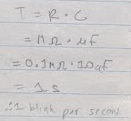 T = R · C
= MΩ · µF
= 0.1MΩ · 10µF
= 1s
∴ 1 blink per second